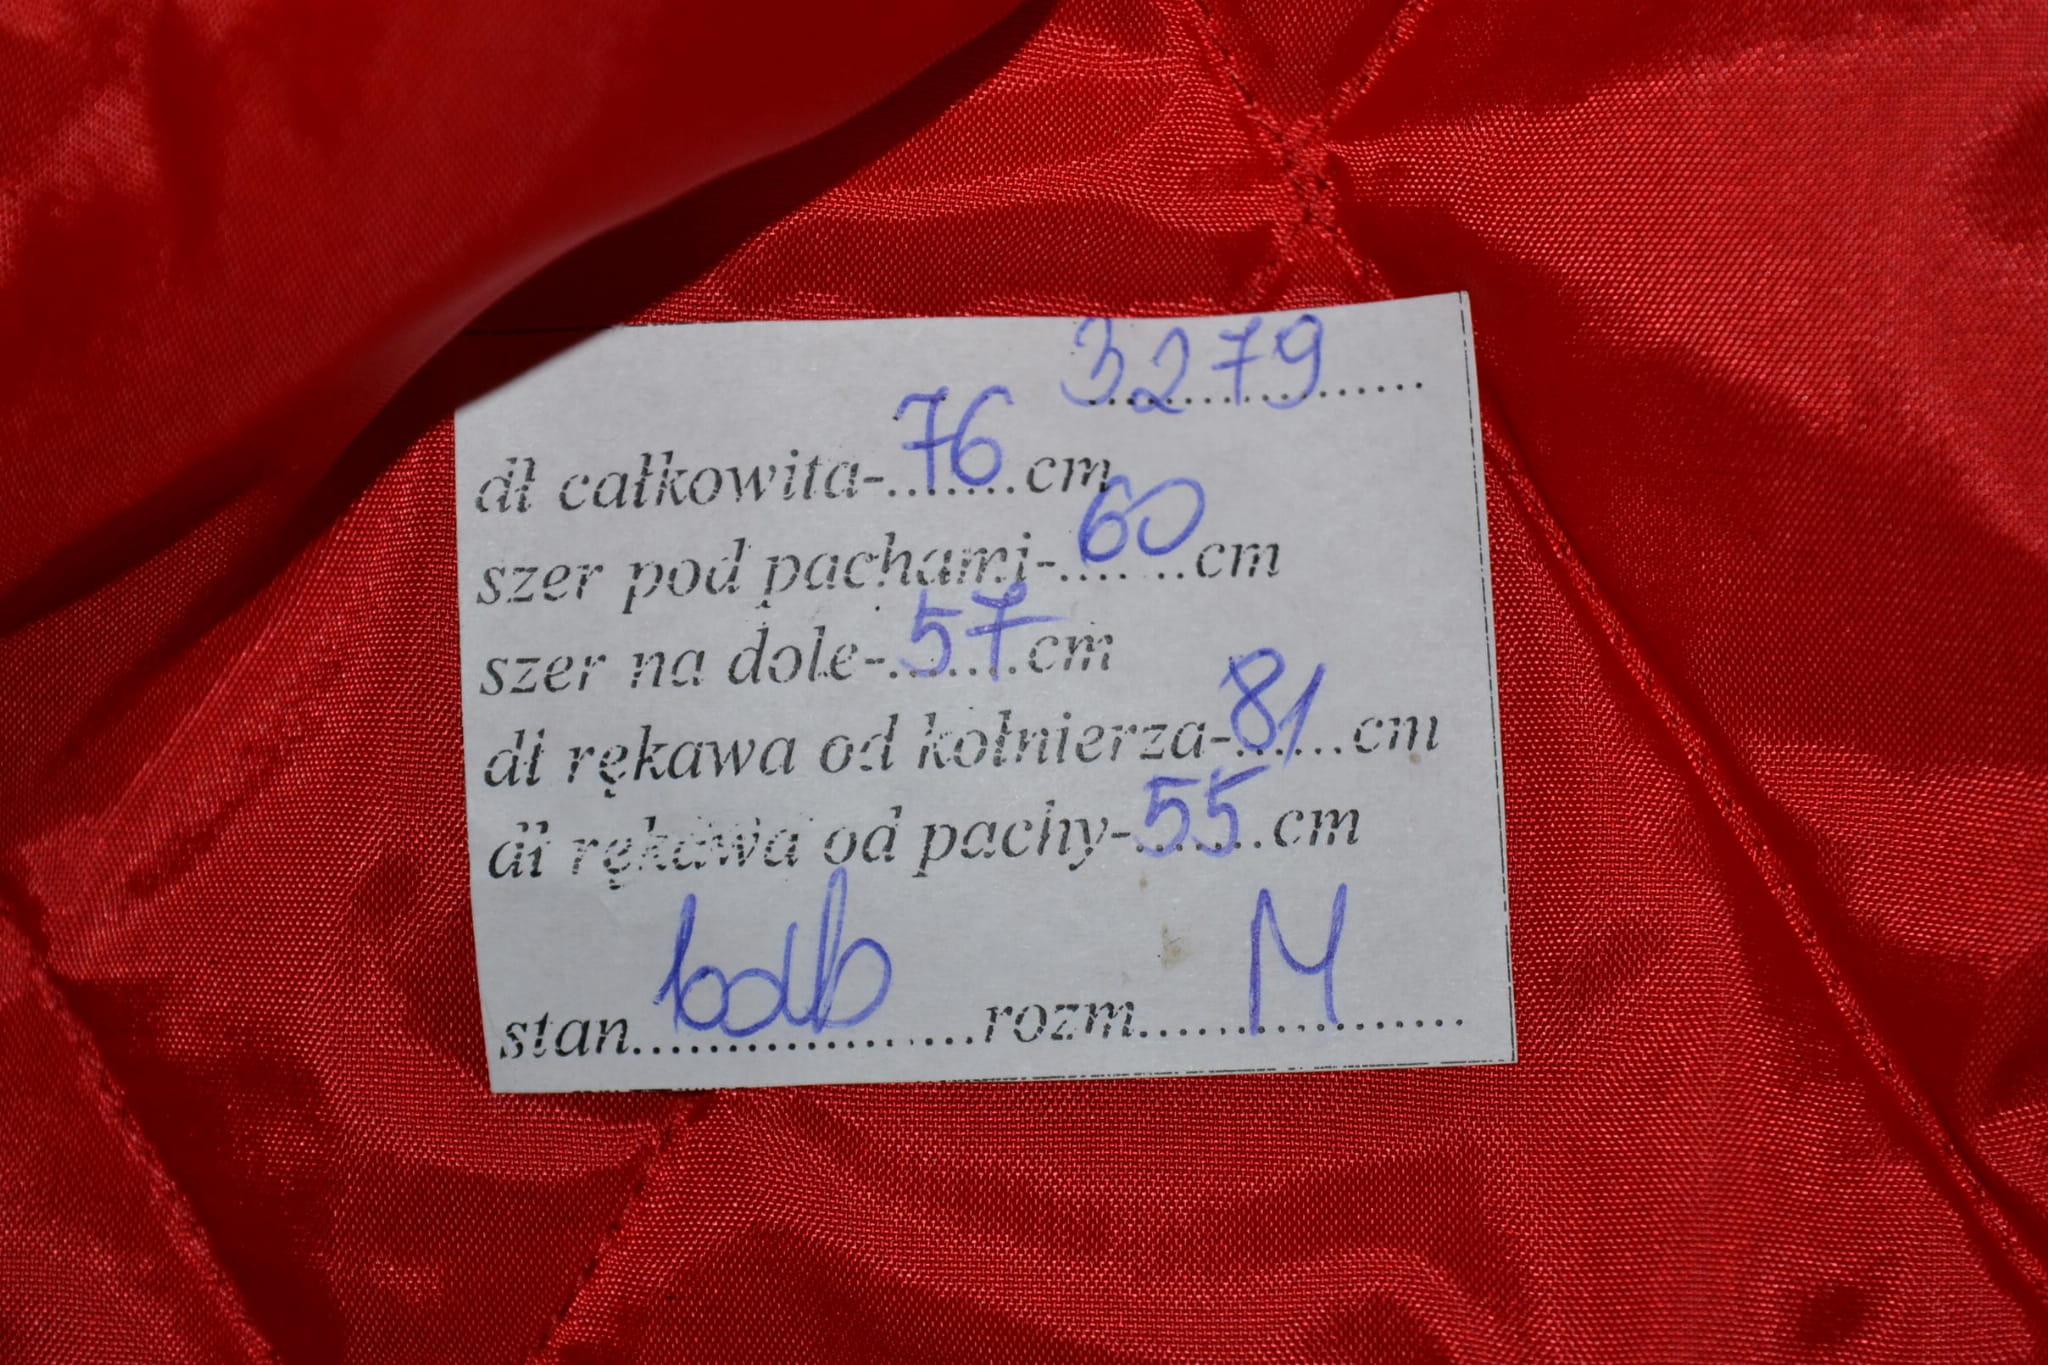 3279
dł całkowita-76cm
szer pod pachami-60cm
szer na dole-57cm
dł rękawa od kołnierza-81cm
dł rękawa od pachy-55cm
stan bdb rozm M